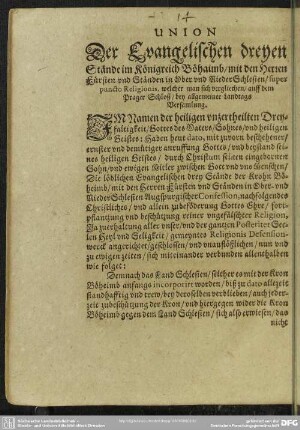 14
UNION
Der Evangelischen dreyen
Stände im Königreich Böhaimb/ mit den Herren
Fürsten vnd Ständen in Ober vnd NiederSchlesien/ super
puncto Religionis, welcher man sich verglichen/ auff dem
Prager Schloß/ bey allgemeiner Landtags
Versamlung.
IM Namen der heiligen vnzertheilten Drey-
faltigkeit/ Gottes des Vatters/ Sohnes/ vnd heiligen
Geistes: Haben heut dato, mit zuvorn beschehener/
ernster vnd demütiger anruffung Gottes/ vnd beystand
seines heiligen Geistes/ durch Christum seinen eingebornen
Sohn/ vnd ewigen Mitler zwischen Gott vnd vns Menschen/
Die löblichen Evangelischen drey Stände der Krohn Bö-
heimb/ mit den Herren Fürsten vnd Ständen in Ober- vnd
NiederSchlesien Augspurgischer Confession, nachfolgendes
Christliches/ vnd allein zubeförderung Gottes Ehre/ fort-
pflantzung vnd beschützung reiner vngefälschter Religion,
Zu zuerhaltung aller vnser/ vnd der gantzen Posteritet See-
len Heyl vnd Seligkeit/ gemeynes Religions Defension-
werck angerichtet/ geschlossen/ vnd vnaufflößlichen/ nun vnd
zu ewigen zeiten/ sich miteinander verbunden allenthalben
wie folget:
Demnach das Land Schlesien/ solcher es mit der Kron
Böheimb anfangs incorporirt worden/ biß zu dato allezeit
standhafftig vnd trew/ bey derselben verblieben/ auch jeder-
zeit zubeschützung der Kron/ vnd hiergegen wider die Kron
Böheimb gegen dem Land Schlesien/ sich also erwiesen/ das
nicht
DFG